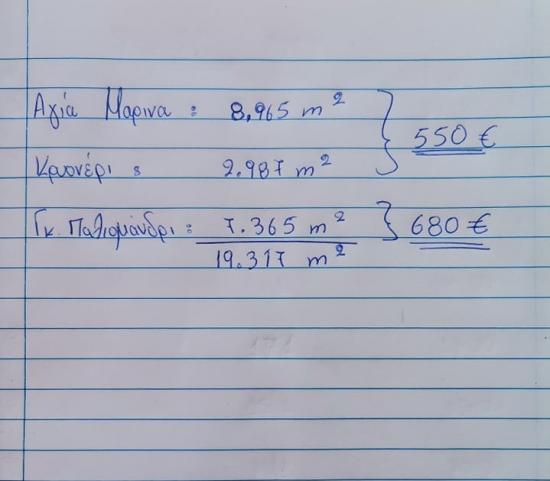 Αγία Μαρινα : 8,965 m² } 550 €
Κρυονέρι : 2.987 m²
Γκ. Πατιομάνδρι : 7.365 m² } 680 €
19.317 m²